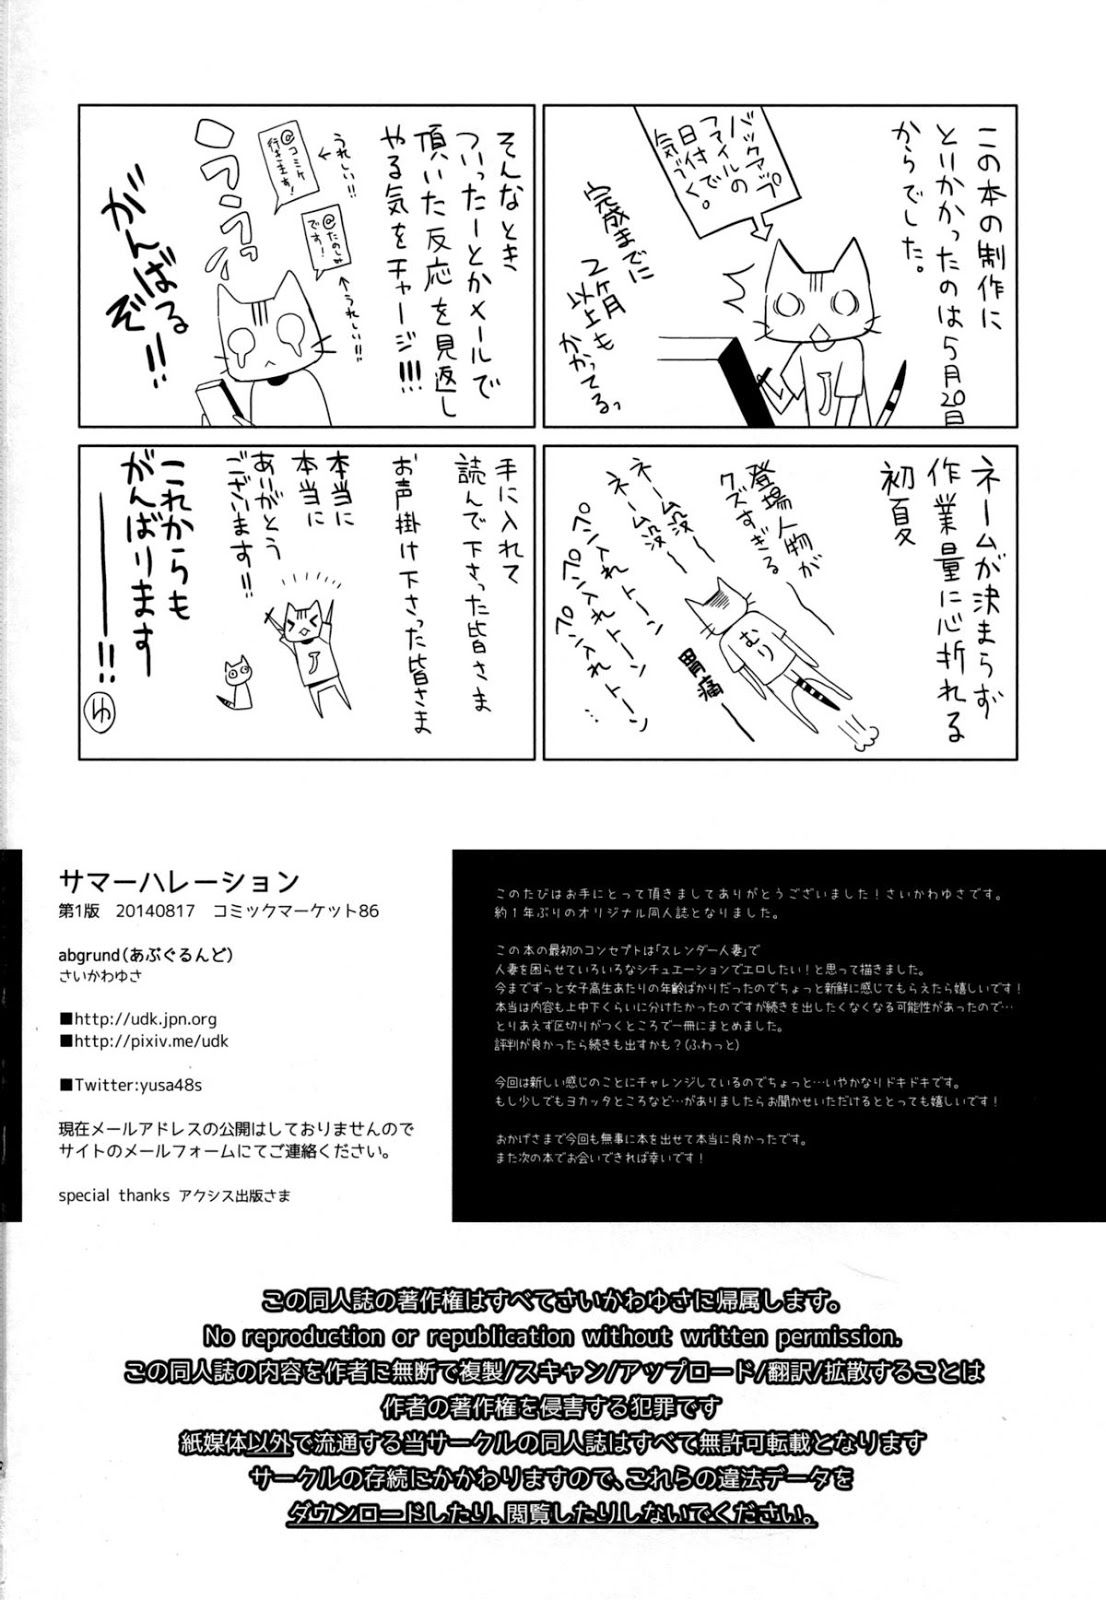 この本の制作に
とりかかったのは5月20日
からでした。
バックアップ
ファイルの
日付で
気づく。
完成までに
2ヶ月
以上も
かかってる。
そんなとき
ついったーとかメールで
頂いた反応を見返し
やる気をチャージ!!!
うれしい!!
@コミケ
行きます!
@たのしみ
です!
うれしい!!
ウッウッ
がんばる
ぞ!!
ネームが決まらず
作業量に心折れる
初夏
登場人物が
クズすぎる
ネーム没〜
ネーム没〜
ペン入れトーン
ペン入れトーン
ペン入れトーン…
むり
胃痛
手に入れて
読んで下さった皆さま
お声掛け下さった皆さま
本当に
本当に
ありがとう
ございます!!
これからも
がんばります
――!!
ゆ
サマーハレーション
第1版 20140817 コミックマーケット86
abgrund(あぶぐるんど)
さいかわゆさ
■http://udk.jpn.org
■http://pixiv.me/udk
■Twitter:yusa48s
現在メールアドレスの公開はしておりませんので
サイトのメールフォームにてご連絡ください。
special thanks アクシス出版さま
このたびはお手にとって頂きましてありがとうございました!さいかわゆさです。
約1年ぶりのオリジナル同人誌となりました。
この本の最初のコンセプトは「スレンダー人妻」で
人妻を困らせていろいろなシチュエーションでエロしたい!と思って描きました。
今までずっと女子高生あたりの年齢ばかりだったのでちょっと新鮮に感じてもらえたら嬉しいです!
本当は内容も上中下くらいに分けたかったのですが続きを出したくなくなる可能性があったので…
とりあえず区切りがつくところで一冊にまとめました。
評判が良かったら続きも出すかも?(ふわっと)
今回は新しい感じのことにチャレンジしているのでちょっと…いやかなりドキドキです。
もし少しでもヨカッタところなど…がありましたらお聞かせいただけるととっても嬉しいです!
おかげさまで今回も無事に本を出せて本当に良かったです。
また次の本でお会いできれば幸いです!
この同人誌の著作権はすべてさいかわゆさに帰属します。
No reproduction or republication without written permission.
この同人誌の内容を作者に無断で複製/スキャン/アップロード/翻訳/拡散することは
作者の著作権を侵害する犯罪です
紙媒体以外で流通する当サークルの同人誌はすべて無許可転載となります
サークルの存続にかかわりますので、これらの違法データを
ダウンロードしたり、閲覧したりしないでください。